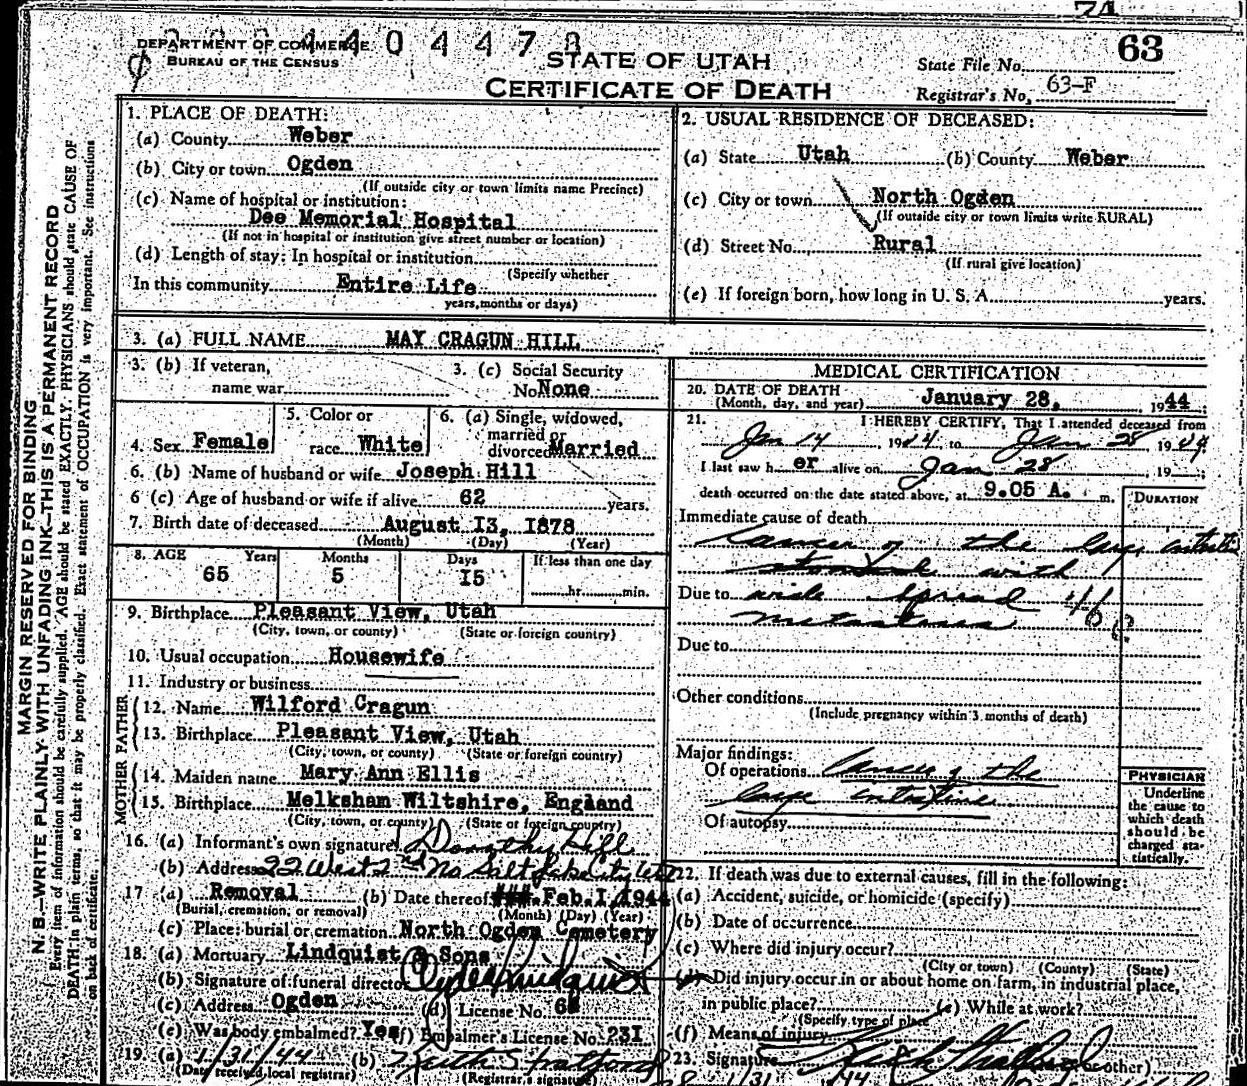 74
DEPARTMENT OF COMMERCE
BUREAU OF THE CENSUS
4 0 4 4 7 8
STATE OF UTAH
CERTIFICATE OF DEATH
63
State File No.
Registrar's No. 63-F
MARGIN RESERVED FOR BINDING
N. B.—WRITE PLAINLY WITH UNFADING INK—THIS IS A PERMANENT RECORD
Every item of information should be carefully supplied. AGE should be stated EXACTLY. PHYSICIANS should state CAUSE OF
DEATH in plain terms, so that it may be properly classified. Exact statement of OCCUPATION is very important. See instructions
on back of certificate.
1. PLACE OF DEATH:
(a) County Weber
(b) City or town Ogden
(If outside city or town limits name Precinct)
(c) Name of hospital or institution:
Dee Memorial Hospital
(If not in hospital or institution give street number or location)
(d) Length of stay: In hospital or institution
(Specify whether
In this community Entire Life
years, months or days)
2. USUAL RESIDENCE OF DECEASED:
(a) State Utah (b) County Weber
(c) City or town North Ogden
(If outside city or town limits write RURAL)
(d) Street No. Rural
(If rural give location)
(e) If foreign born, how long in U. S. A. years.
3. (a) FULL NAME MAY CRAGUN HILL
3. (b) If veteran,
name war
3. (c) Social Security
No. None
4. Sex Female
5. Color or
race White
6. (a) Single, widowed,
married or
divorced Married
6. (b) Name of husband or wife Joseph Hill
6 (c) Age of husband or wife if alive 62 years.
7. Birth date of deceased August I3, I878
(Month) (Day) (Year)
8. AGE Years Months Days If less than one day
65 5 I5 hr. min.
9. Birthplace Pleasant View, Utah
(City, town, or county) (State or foreign country)
10. Usual occupation Housewife
11. Industry or business
FATHER
12. Name Wilford Cragun
13. Birthplace Pleasant View, Utah
(City, town, or county) (State or foreign country)
MOTHER
14. Maiden name Mary Ann Ellis
15. Birthplace Melksham Wiltshire, England
(City, town, or county) (State or foreign country)
16. (a) Informant's own signature Dorothy Hill
(b) Address 22 West 2nd No Salt Lake City Ut
17 (a) Removal (b) Date thereof Feb. I, 1944
(Burial, cremation, or removal) (Month) (Day) (Year)
(c) Place: burial or cremation North Ogden Cemetery
18. (a) Mortuary Lindquist & Sons
(b) Signature of funeral director
(c) Address Ogden (d) License No.
(e) Was body embalmed? Yes (f) Embalmer's License No. 23I
19. (a) 1/31/44 (b) Keith Stratford
(Date received local registrar) (Registrar's signature)
MEDICAL CERTIFICATION
20. DATE OF DEATH
(Month, day, and year) January 28, 1944
21. I HEREBY CERTIFY, That I attended deceased from
Jan 14 1944 to Jan 28 1944
I last saw her alive on Jan 28 19
death occurred on the date stated above, at 9.05 A. m.
DURATION
Immediate cause of death
Cancer of the large intestine
with
Due to wide spread
metastasis
Due to
Other conditions
(Include pregnancy within 3 months of death)
Major findings:
Of operations Cancer of the
large intestine
Of autopsy
PHYSICIAN
Underline
the cause to
which death
should be
charged sta-
tistically.
22. If death was due to external causes, fill in the following:
(a) Accident, suicide, or homicide (specify)
(b) Date of occurrence
(c) Where did injury occur?
(City or town) (County) (State)
Did injury occur in or about home on farm, in industrial place,
in public place? (e) While at work?
(Specify type of place
(f) Means of injury
23. Signature Keith Stratford other)
1/31 /44